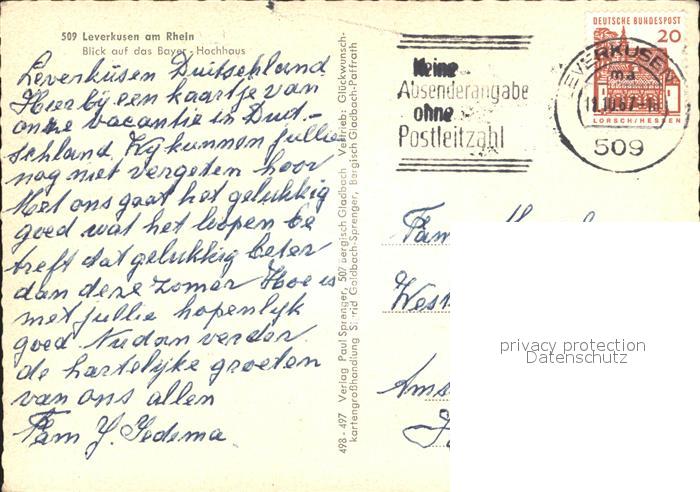 509 Leverkusen am Rhein
Blick auf das Bayer-Hochhaus
Leverküsen Duitschland
Hierbij een kaartje van
onze vacantie in Dud-
schland. Wij kunnen jullie
nog niet vergeten hoor
Met ons gaat het gelukkig
goed wat het loopen be
treft dat gelukkig beter
dan deze zomer Hoe is
met jullie hopenlijk
goed. Nu dan verder
de hartelijke groeten
van ons allen
Fam Y. Iedema
498-497 Verlag Paul Sprenger, 507 Bergisch Gladbach Vertrieb: Glückwunsch-
kartengroßhandlung Sigrid Goldbach-Sprenger, Bergisch Gladbach-Paffrath
Keine
Absenderangabe
ohne
Postleitzahl
DEUTSCHE BUNDESPOST
20
LORSCH/HESSEN
LEVERKUSEN
ma
11.10.67
509
Fam
West
Ams
privacy protection
Datenschutz